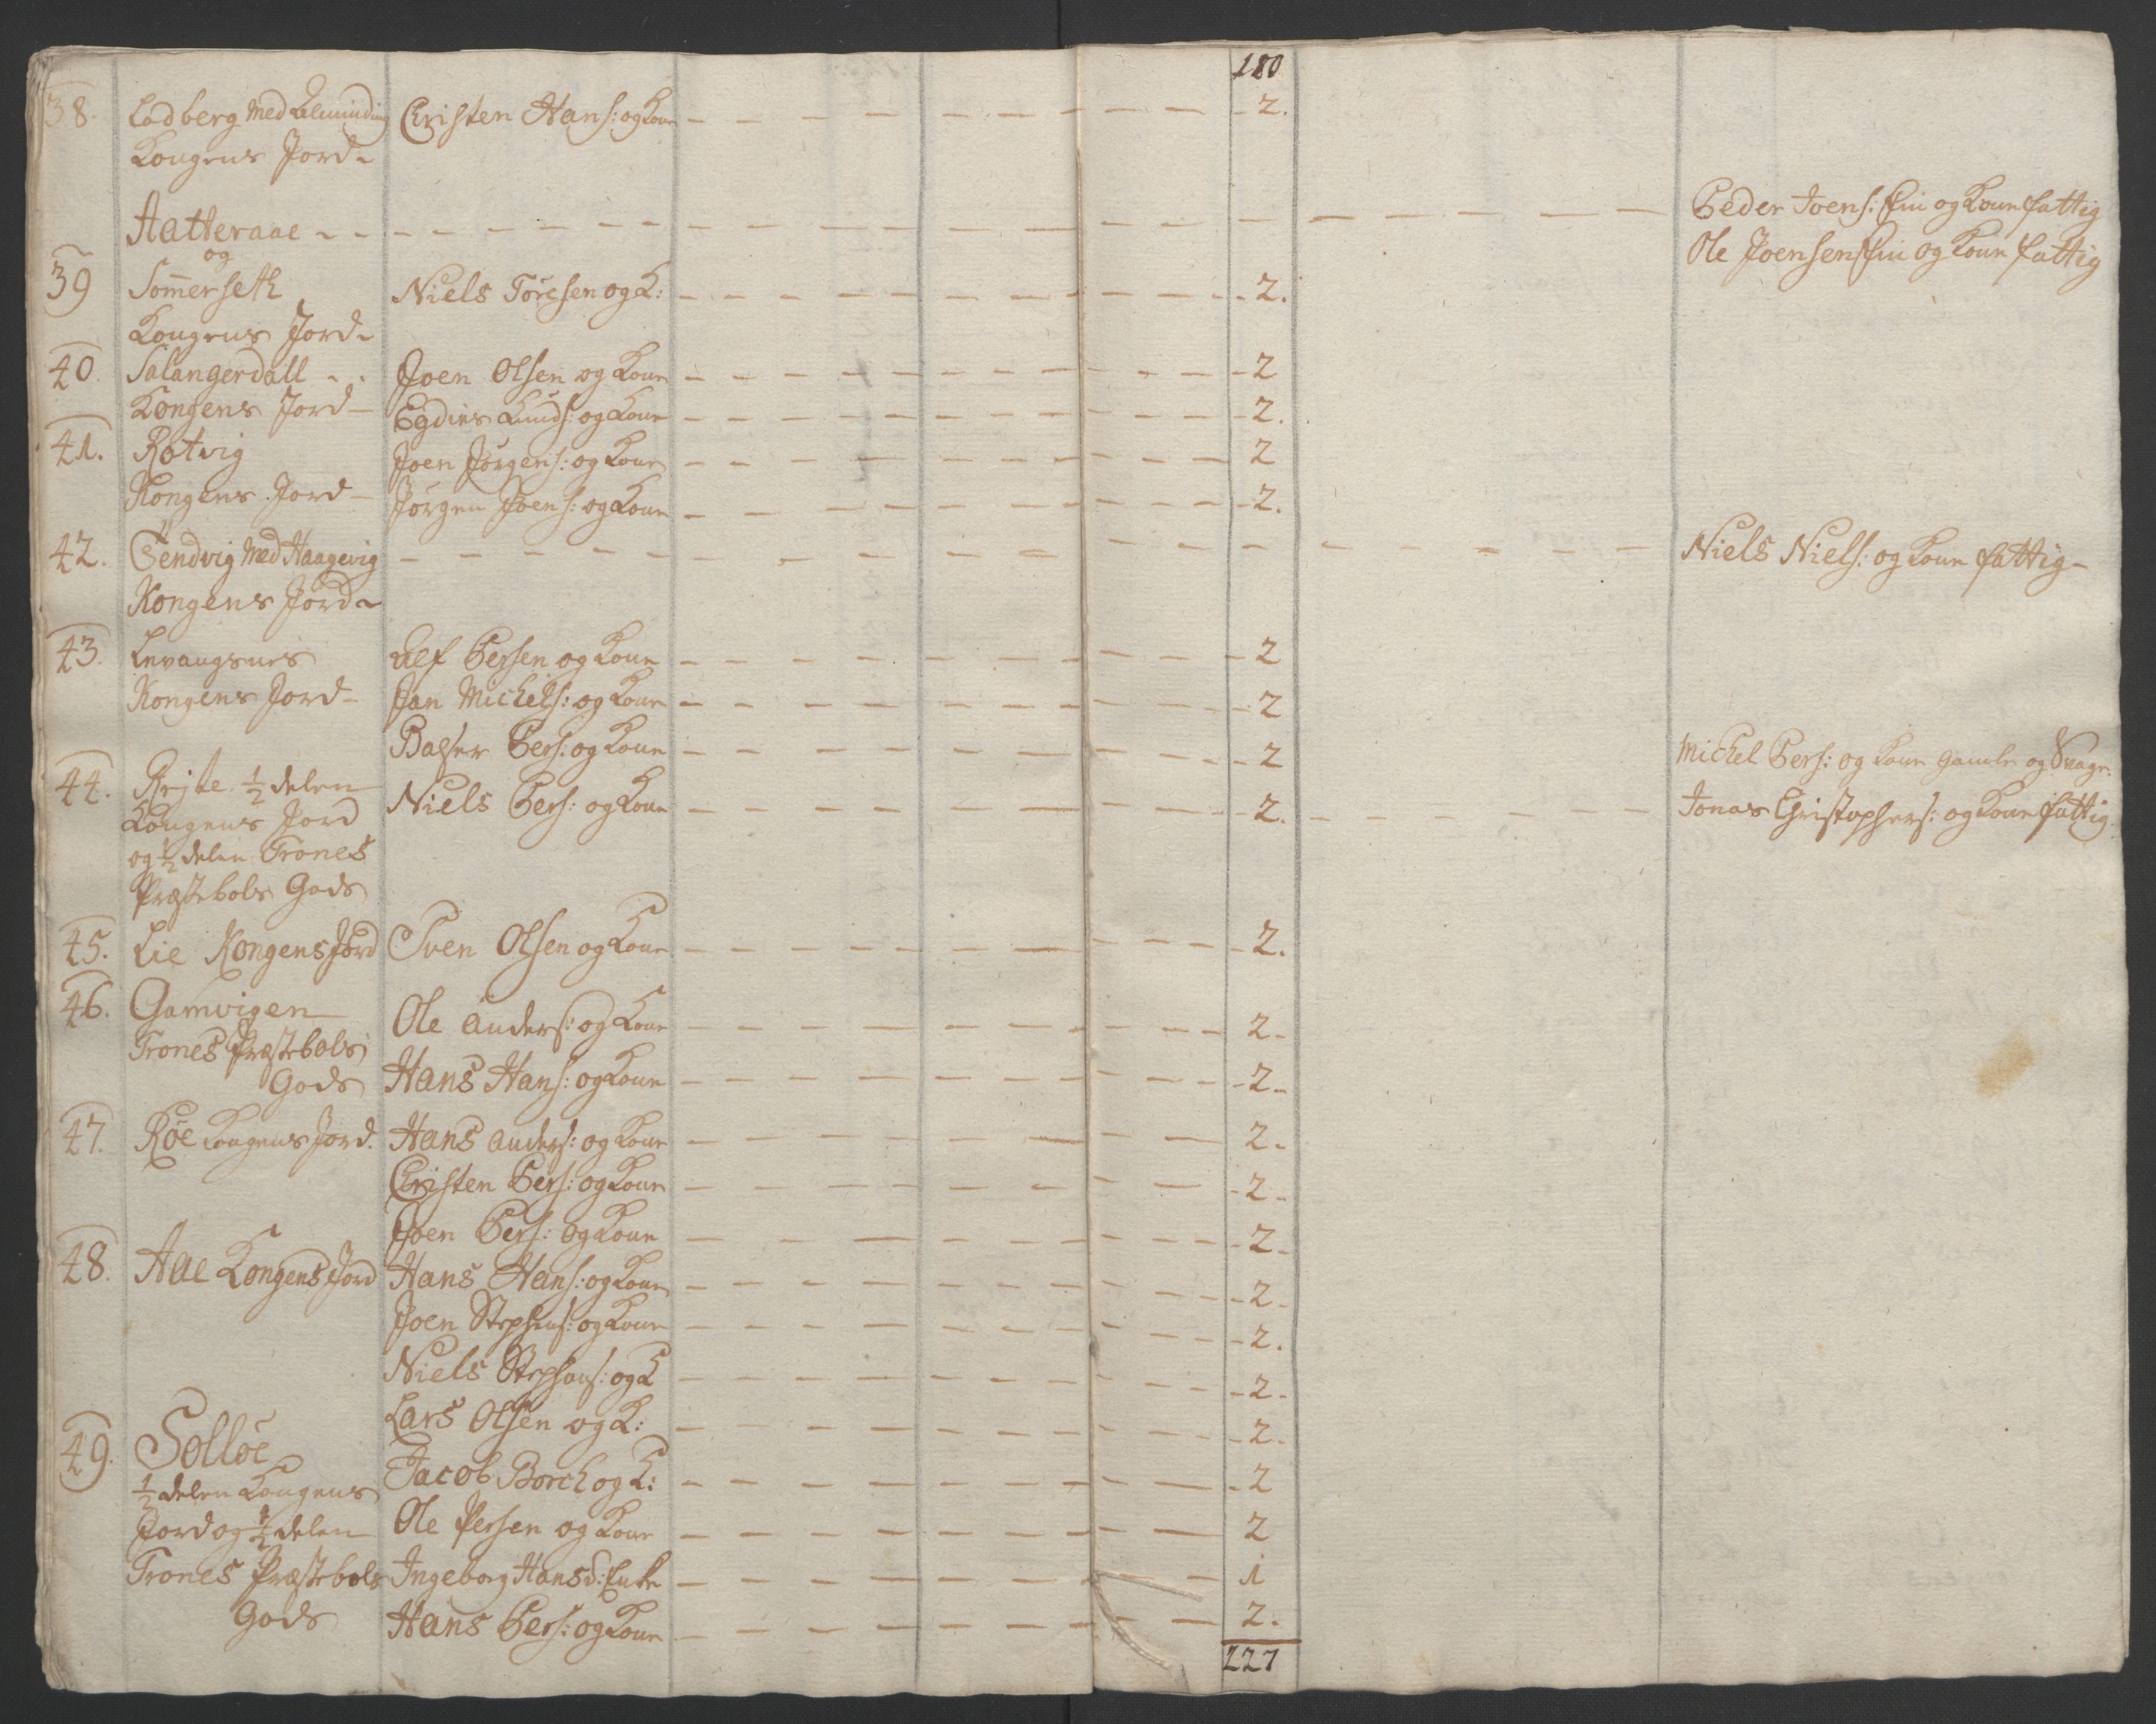 180
38. Lodberg med Elvinding Christen Hans: og Kone 2.
Kongens Jord
Aatteraae Peder Joens: Fin og Kone fattig
og Ole Joensen Fin og Kone fattig
39 Sommerseth Niels Torchsen og K: 2.
Kongens Jord
40. Salangerdall Joen Olsen og Kone 2
Kongens Jord Egdius Knuds: og Kone 2.
41. Rotvig Joen Jörgens: og Kone 2
Kongens Jord Jörgen Joens: og Kone 2.
42. Tendvig med Haagevig Niels Niels: og Kone fattig
Kongens Jord
43. Levangsnes Elef Persen og Kone 2
Kongens Jord Jan Michels: og Kone 2
Balser Pers: og Kone 2 Michel Pers: og Kone Gamle og Svage.
44. Rejte ½ delen Niels Pers: og Kone 2. Jonas Christophers: og Kone fattig
Kongens Jord
og ½ delen Trones
Præstebols Gods
45. Lie Kongens Jord Sven Olsen og Kone 2.
46. Gamvigen Ole Anders: og Kone 2
Trones Præstebols
Gods Hans Hans: og Kone 2
47. Röe Kongens Jord. Hans Anders: og Kone 2.
Christen Pers: og Kone 2
Joen Pers: og Kone 2
48. Aae Kongens Jord Hans Hans: og Kone 2
Joen Stephens: og Kone 2.
Niels Stephans: og K 2
Lars Olsen og K: 2
49. Solløe Jacob Borch og K: 2
½ delen Kongens
Jord og ½ delen Ole Persen og Kone 2
Trones Præstebols Ingeborg Hansd: Enke 1
Gods Hans Pers: og Kone 2.
227